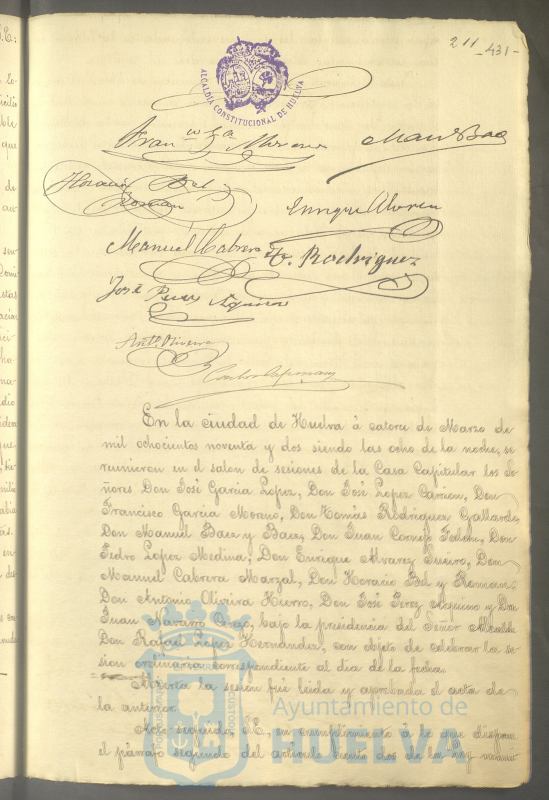 211 - 431 -
ALCALDÍA CONSTITUCIONAL DE HUELVA
Fran co Ga Moreno
Manl Baez
Horacio Bel
Roman
Enrique Alvarez
Manuel Cabrera
To. Rodriguez
José Perez Aquino
Anto. Oliveira
En la ciudad de Huelva á catorce de Marzo de
mil ochocientos noventa y dos siendo las ocho de la noche, se
reunieron en el salon de sesiones de la Casa Capitular los Se-
ñores Don José Garcia Lopez, Don José Lopez Carrion, Don
Francisco Garcia Moreno, Don Tomás Rodriguez Gallardo,
Don Manuel Baez y Baez, Don Juan Cornejo Don
Pedro Lopez Medina, Don Enrique Alvarez Sueiro, Don
Manuel Cabrera Marzal, Don Horacio Bel y Roman,
Don Antonio Oliveira Hierro, Don José Perez Aquino y Don
Juan Navarro bajo la presidencia del Señor Alcalde
Don Rafael Lopez Hernandez, con objeto de celebrar la se-
sion ordinaria correspondiente al dia de la fecha.
Abierta la sesion fué leida y aprobada el acta de
la anterior.
Acto seguido, S.E., en cumplimiento á lo que dispone
el párrafo segundo del articulo ciento dos de la ley
Ayuntamiento de
HUELVA